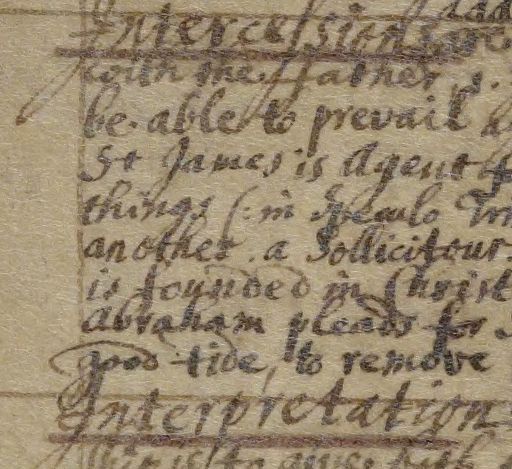 Intercessions are
with the father
be able to prevail
St James is Agent
things (: in Speculo
another. a Sollicitour
is founded in Christ
Abraham pleads for
good tide, to remove
Interpretation